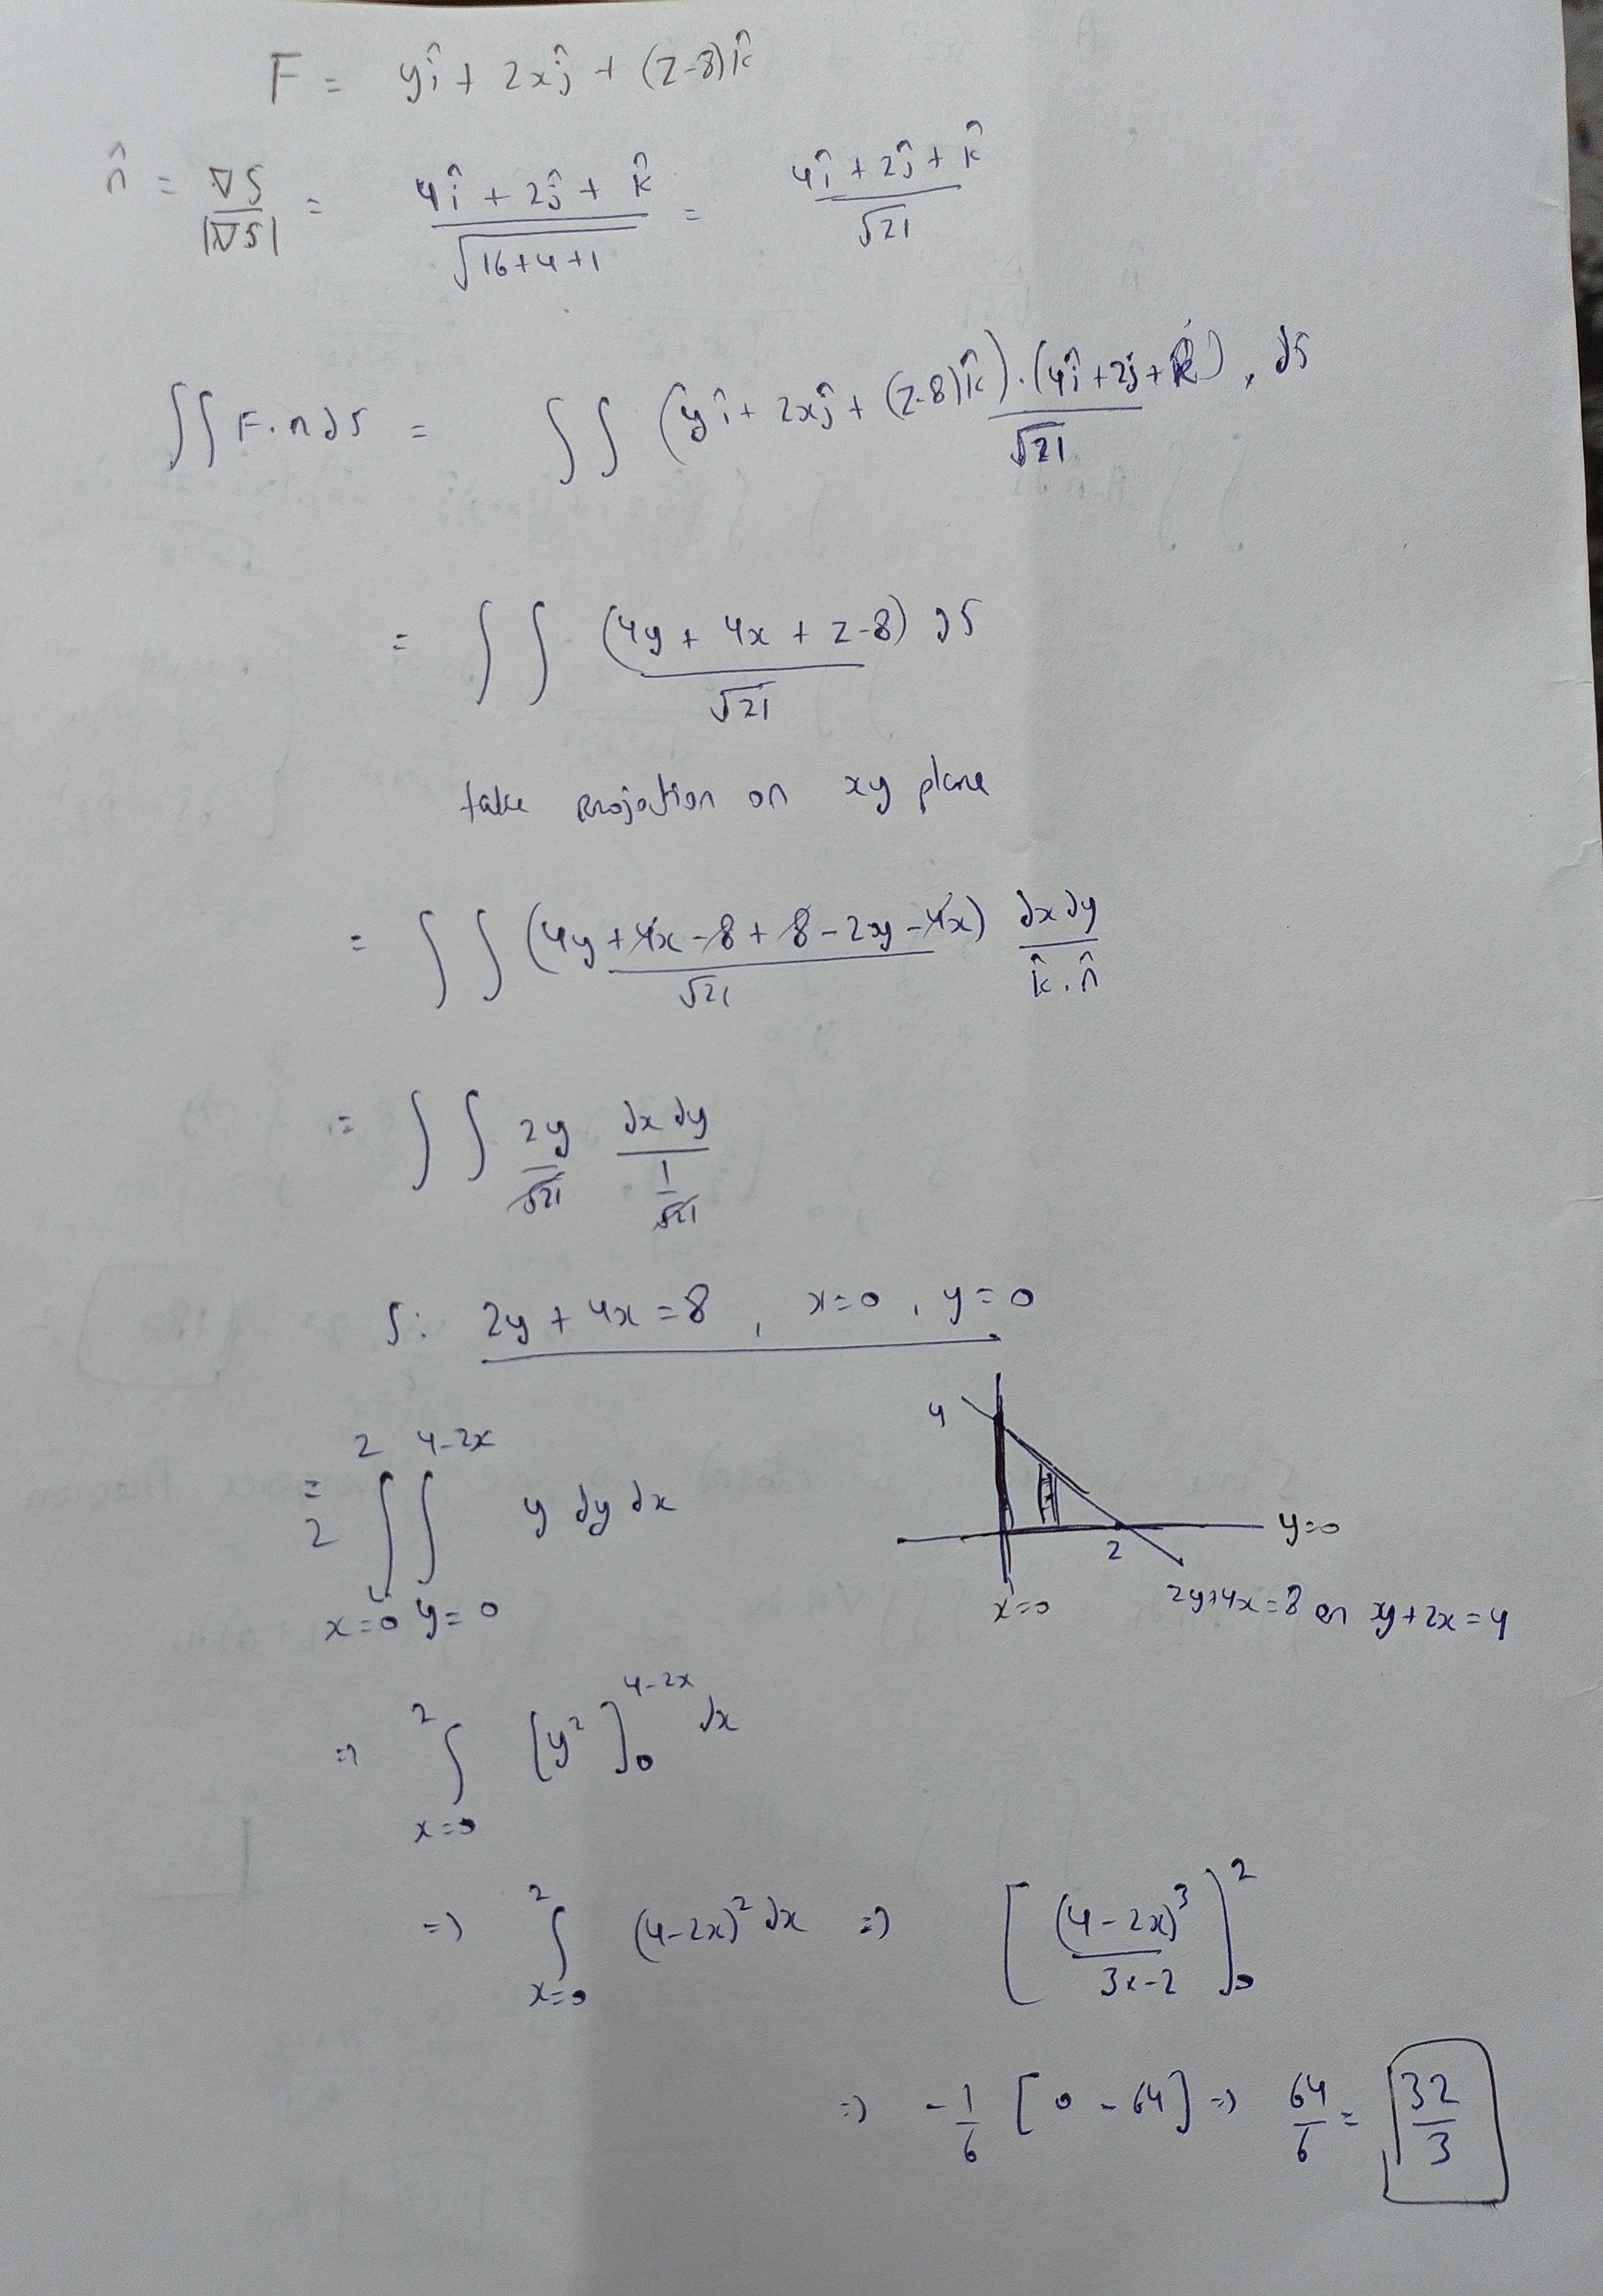 F = yî + 2xĵ + (z-8)k̂
n̂ = ∇S/|∇S| = (4î + 2ĵ + k̂)/√(16+4+1) = (4î + 2ĵ + k̂)/√21
∫∫ F.n ds = ∫∫ (yî + 2xĵ + (z-8)k̂).(4î + 2ĵ + k̂)/√21 . ds
= ∫∫ (4y + 4x + z-8)/√21 ds
take projection on xy plane
= ∫∫ (4y + 4x - 8 + 8 - 2y - 4x)/√21 dxdy/(k̂.n̂)
= ∫∫ 2y/√21 dxdy/(1/√21)
S: 2y + 4x = 8 , x=0 , y=0
4
= 2 ∫_{x=0}^{2} ∫_{y=0}^{4-2x} y dy dx
y=0
2
x=0
2y+4x=8 or y+2x=4
⇒ ∫_{x=0}^{2} [y²]_0^{4-2x} dx
⇒ ∫_{x=0}^{2} (4-2x)² dx ⇒ [(4-2x)³/(3x-2)]_0^2
⇒ -1/6 [0 - 64] ⇒ 64/6 = 32/3